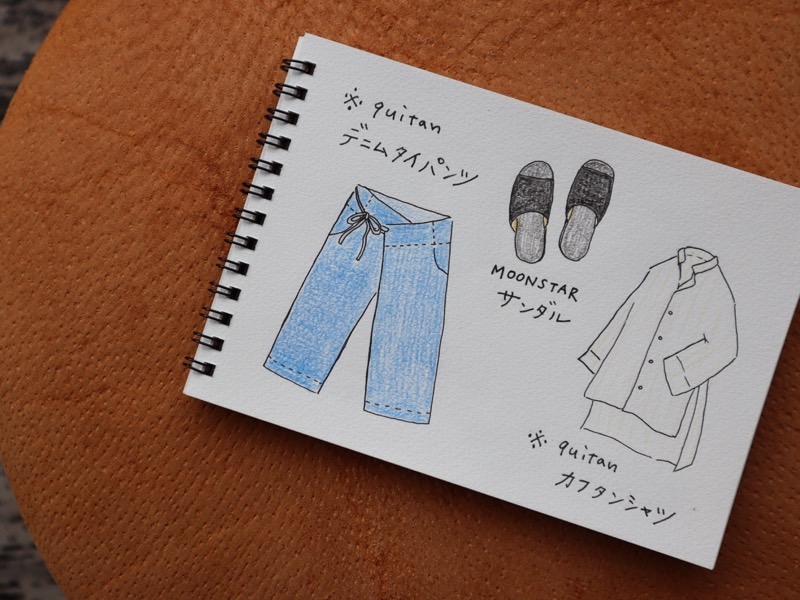 ※ quitan
デニムタイパンツ
MOONSTAR
サンダル
※ quitan
カフタンシャツ